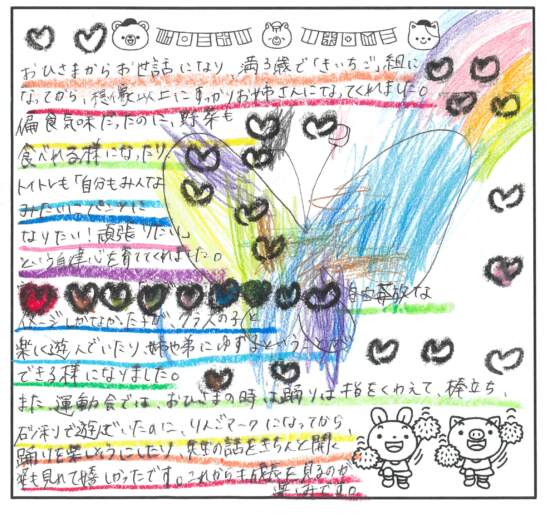 おひさまからお世話になり、満3歳で「きいちご」組に
なってから、想像以上にすっかりお姉さんになってくれました。
偏食気味だったのに、野菜も
食べれる様になったり
トイトレも「自分もみんな
みたいにパンツに
なりたい!頑張りたい」
という自尊心を育ててくれました。
自由奔放な
イメージしかなかったすが、クラスの子と
楽しく遊んでいたり、姉や弟にゆずるという
できる様になりました。
また、運動会では、おひさまの時は踊りは指をくわえて、棒立ち、
砂利で遊んでいたのに、りんごマークになってから、
踊りを楽しそうにしたり、先生の話をきちんと聞く
姿も見れて嬉しかったです。これからも成長を見るのが
楽しみです。